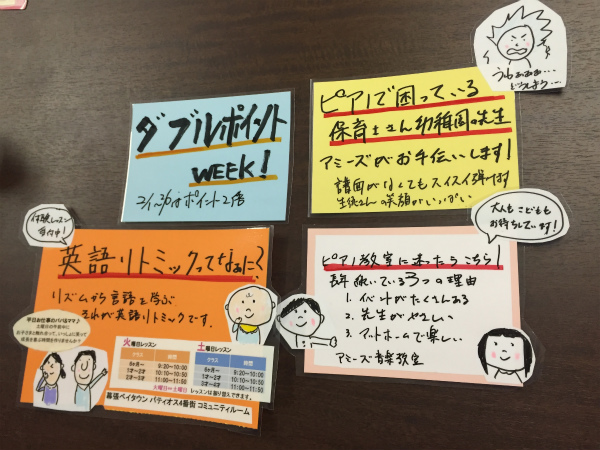 ダブルポイント
WEEK!
ポイント2倍
ピアノで困っている
保育士さん幼稚園の先生
アミーズがお手伝いします!
譜面がなくてもスイスイ弾けます
生徒さんの笑顔がいっぱい
うわぁぁぁ…
どうしよう…
体験レッスン
受付中!
英語リトミックってなぁに?
リズムから言語を学ぶ
それが英語リトミックです。
平日お仕事のパパ&ママ♪
土曜日の午前中に
お子さまと触れ合って、いっしょに育って
成長を喜ぶ時間を作りませんか?
火曜日レッスン
クラス 時間
6ヶ月~ 9:20~10:00
1才~2才 10:10~10:50
2才~3才 11:00~11:50
土曜日レッスン
クラス 時間
6ヶ月~ 9:20~10:00
1才~2才 10:10~10:50
2才~3才 11:00~11:50
火曜日⇔土曜日
レッスンは振り替えできます。
幕張ベイタウン パティオス4番街 コミュニティルーム
大人もこどもも
お待ちしています!
ピアノ教室に迷ったらこちら!
辞めない3つの理由
1. イベントがたくさんある
2. 先生がやさしい
3. アットホームで楽しい
アミーズ音楽教室